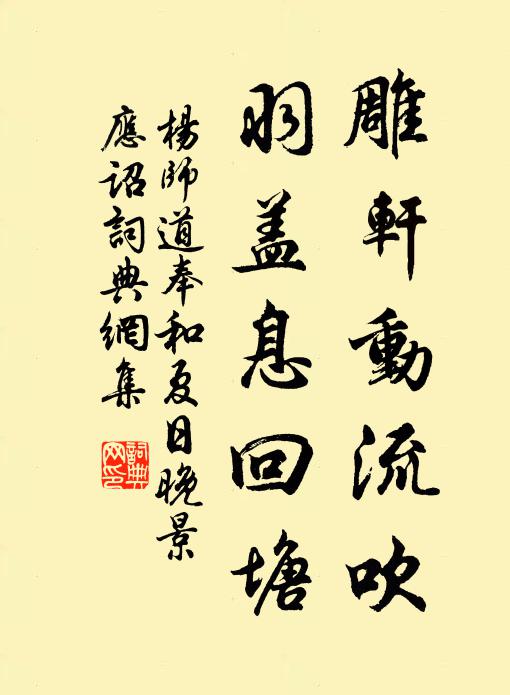 雕軒動流吹
羽盖息回塘
楊師道奉和夏日晚景
應詔詞典網集
詞典
网印